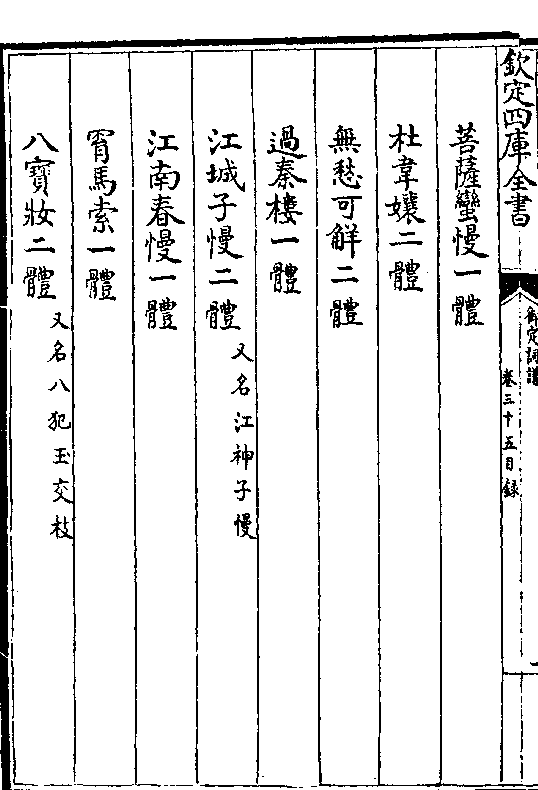 欽定四庫全書
御定詞譜
卷三十五目錄
菩薩蠻慢一體
杜韋孃二體
無愁可解二體
過秦樓一體
江城子慢二體 又名江神子慢
江南春慢一體
胃馬索一體
八寶妝二體 又名八犯玉交枝